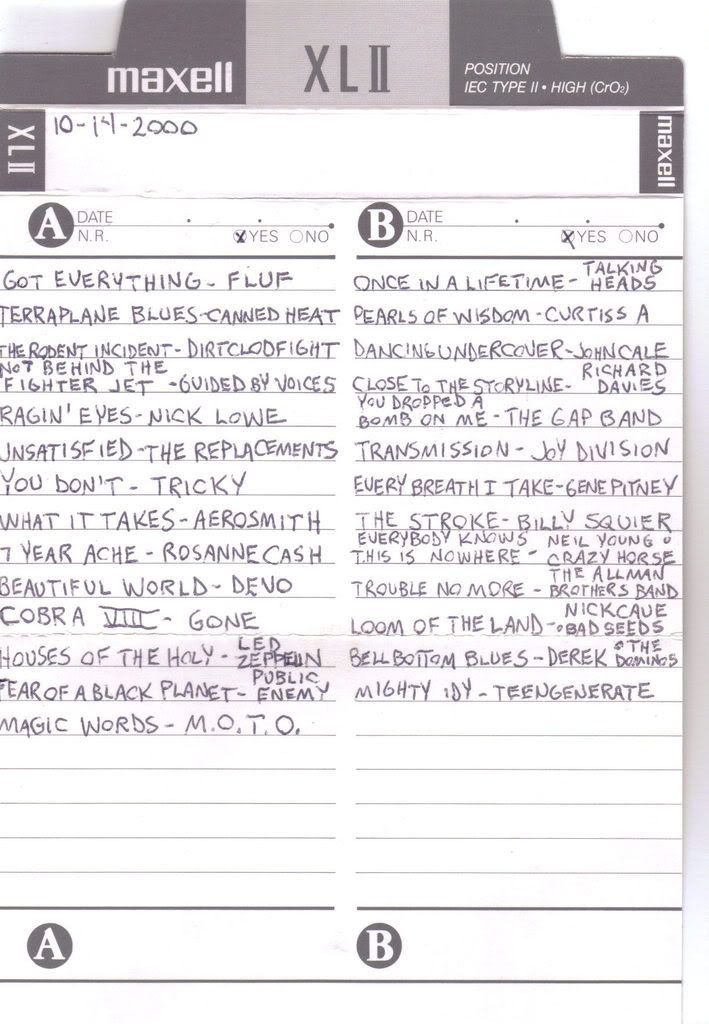 maxell XLII POSITION
IEC TYPE II • HIGH (CrO₂)
XLII 10-14-2000 maxell
A DATE
N.R. YES NO
GOT EVERYTHING - FLUF
TERRAPLANE BLUES - CANNED HEAT
THE RODENT INCIDENT - DIRTCLODFIGHT
NOT BEHIND THE
FIGHTER JET - GUIDED BY VOICES
RAGIN' EYES - NICK LOWE
UNSATISFIED - THE REPLACEMENTS
YOU DON'T - TRICKY
WHAT IT TAKES - AEROSMITH
7 YEAR ACHE - ROSANNE CASH
BEAUTIFUL WORLD - DEVO
COBRA VIII - GONE
HOUSES OF THE HOLY - LED
ZEPPELIN
FEAR OF A BLACK PLANET - PUBLIC
ENEMY
MAGIC WORDS - M.O.T.O.
A
B DATE
N.R. YES NO
ONCE IN A LIFETIME - TALKING
HEADS
PEARLS OF WISDOM - CURTISS A
DANCING UNDERCOVER - JOHN CALE
CLOSE TO THE STORYLINE - RICHARD
DAVIES
YOU DROPPED A
BOMB ON ME - THE GAP BAND
TRANSMISSION - JOY DIVISION
EVERY BREATH I TAKE - GENE PITNEY
THE STROKE - BILLY SQUIER
EVERYBODY KNOWS NEIL YOUNG &
THIS IS NOWHERE - CRAZY HORSE
TROUBLE NO MORE - THE ALLMAN
BROTHERS BAND
LOOM OF THE LAND - NICK CAVE
& BAD SEEDS
BELL BOTTOM BLUES - DEREK & THE
DOMINOS
MIGHTY IDY - TEENGENERATE
B